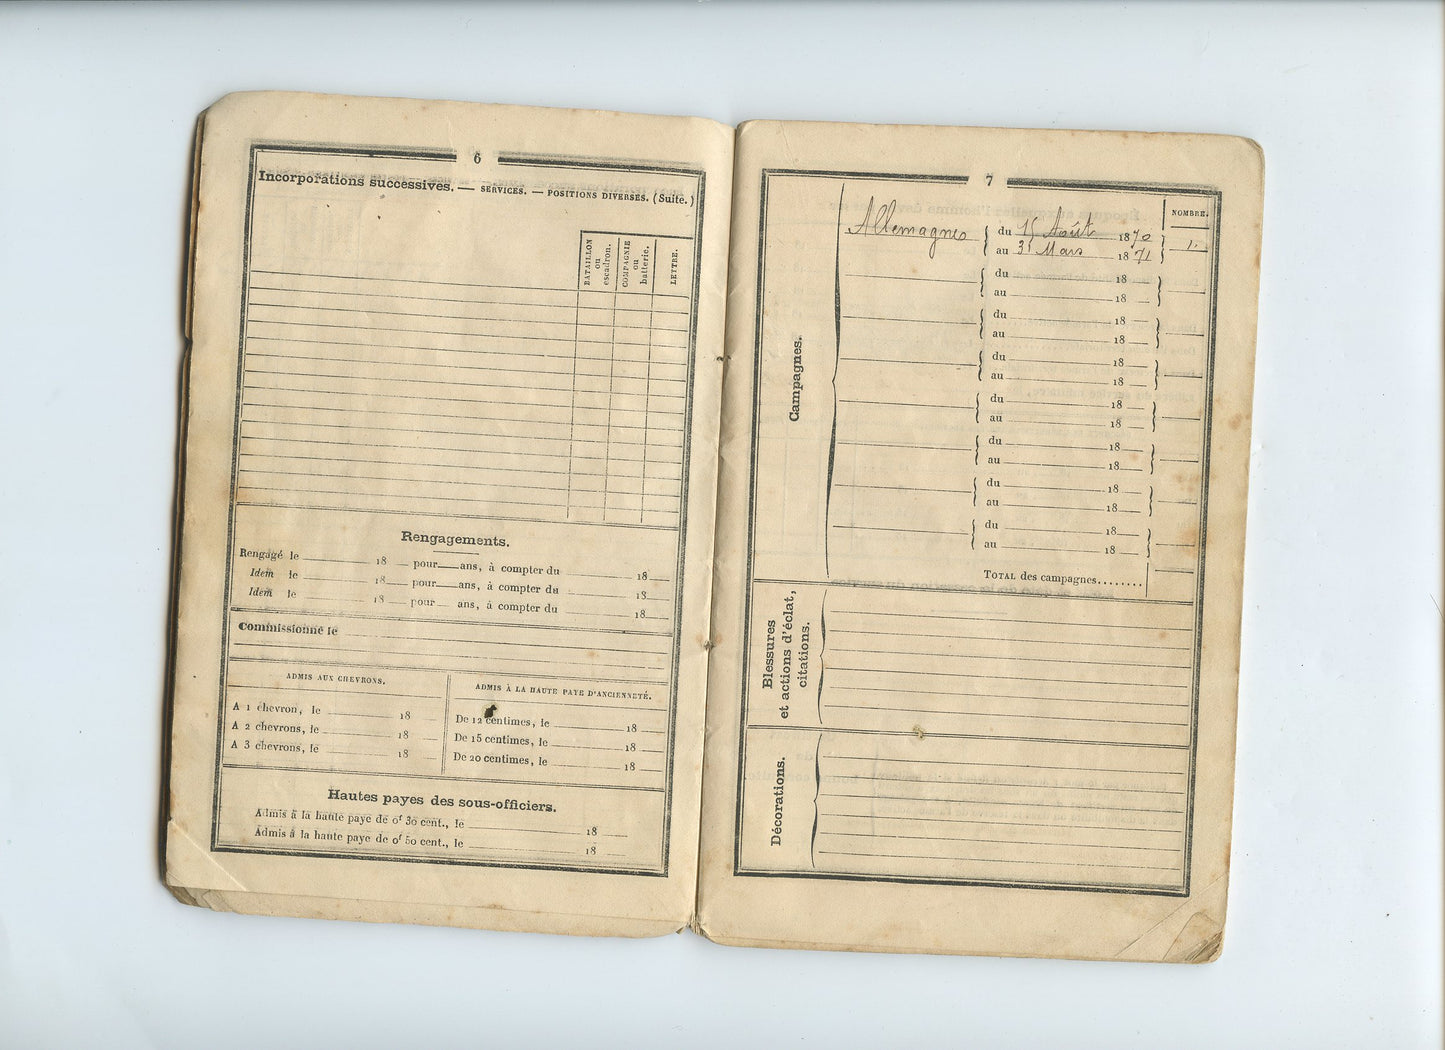 6
Incorporations successives. — SERVICES. — POSITIONS DIVERSES. (Suite.)
BATAILLON
ou
escadron.
COMPAGNIE
ou
batterie.
LETTRE.
Rengagements.
Rengagé le 18 pour ans, à compter du 18
Idem le 18 pour ans, à compter du 18
Idem le 18 pour ans, à compter du 18
Commissionné le
ADMIS AUX CHEVRONS.
A 1 chevron, le 18
A 2 chevrons, le 18
A 3 chevrons, le 18
ADMIS À LA HAUTE PAYE D'ANCIENNETÉ.
De 12 centimes, le 18
De 15 centimes, le 18
De 20 centimes, le 18
Hautes payes des sous-officiers.
Admis à la haute paye de 0f 30 cent., le 18
Admis à la haute paye de 0f 50 cent., le 18
7
NOMBRE.
Campagnes.
Allemagne du 15 Août 1870
au 31 Mars 1871 1.
du 18
au 18
du 18
au 18
du 18
au 18
du 18
au 18
du 18
au 18
du 18
au 18
du 18
au 18
TOTAL des campagnes........
Blessures
et actions d'éclat,
citations.
Décorations.